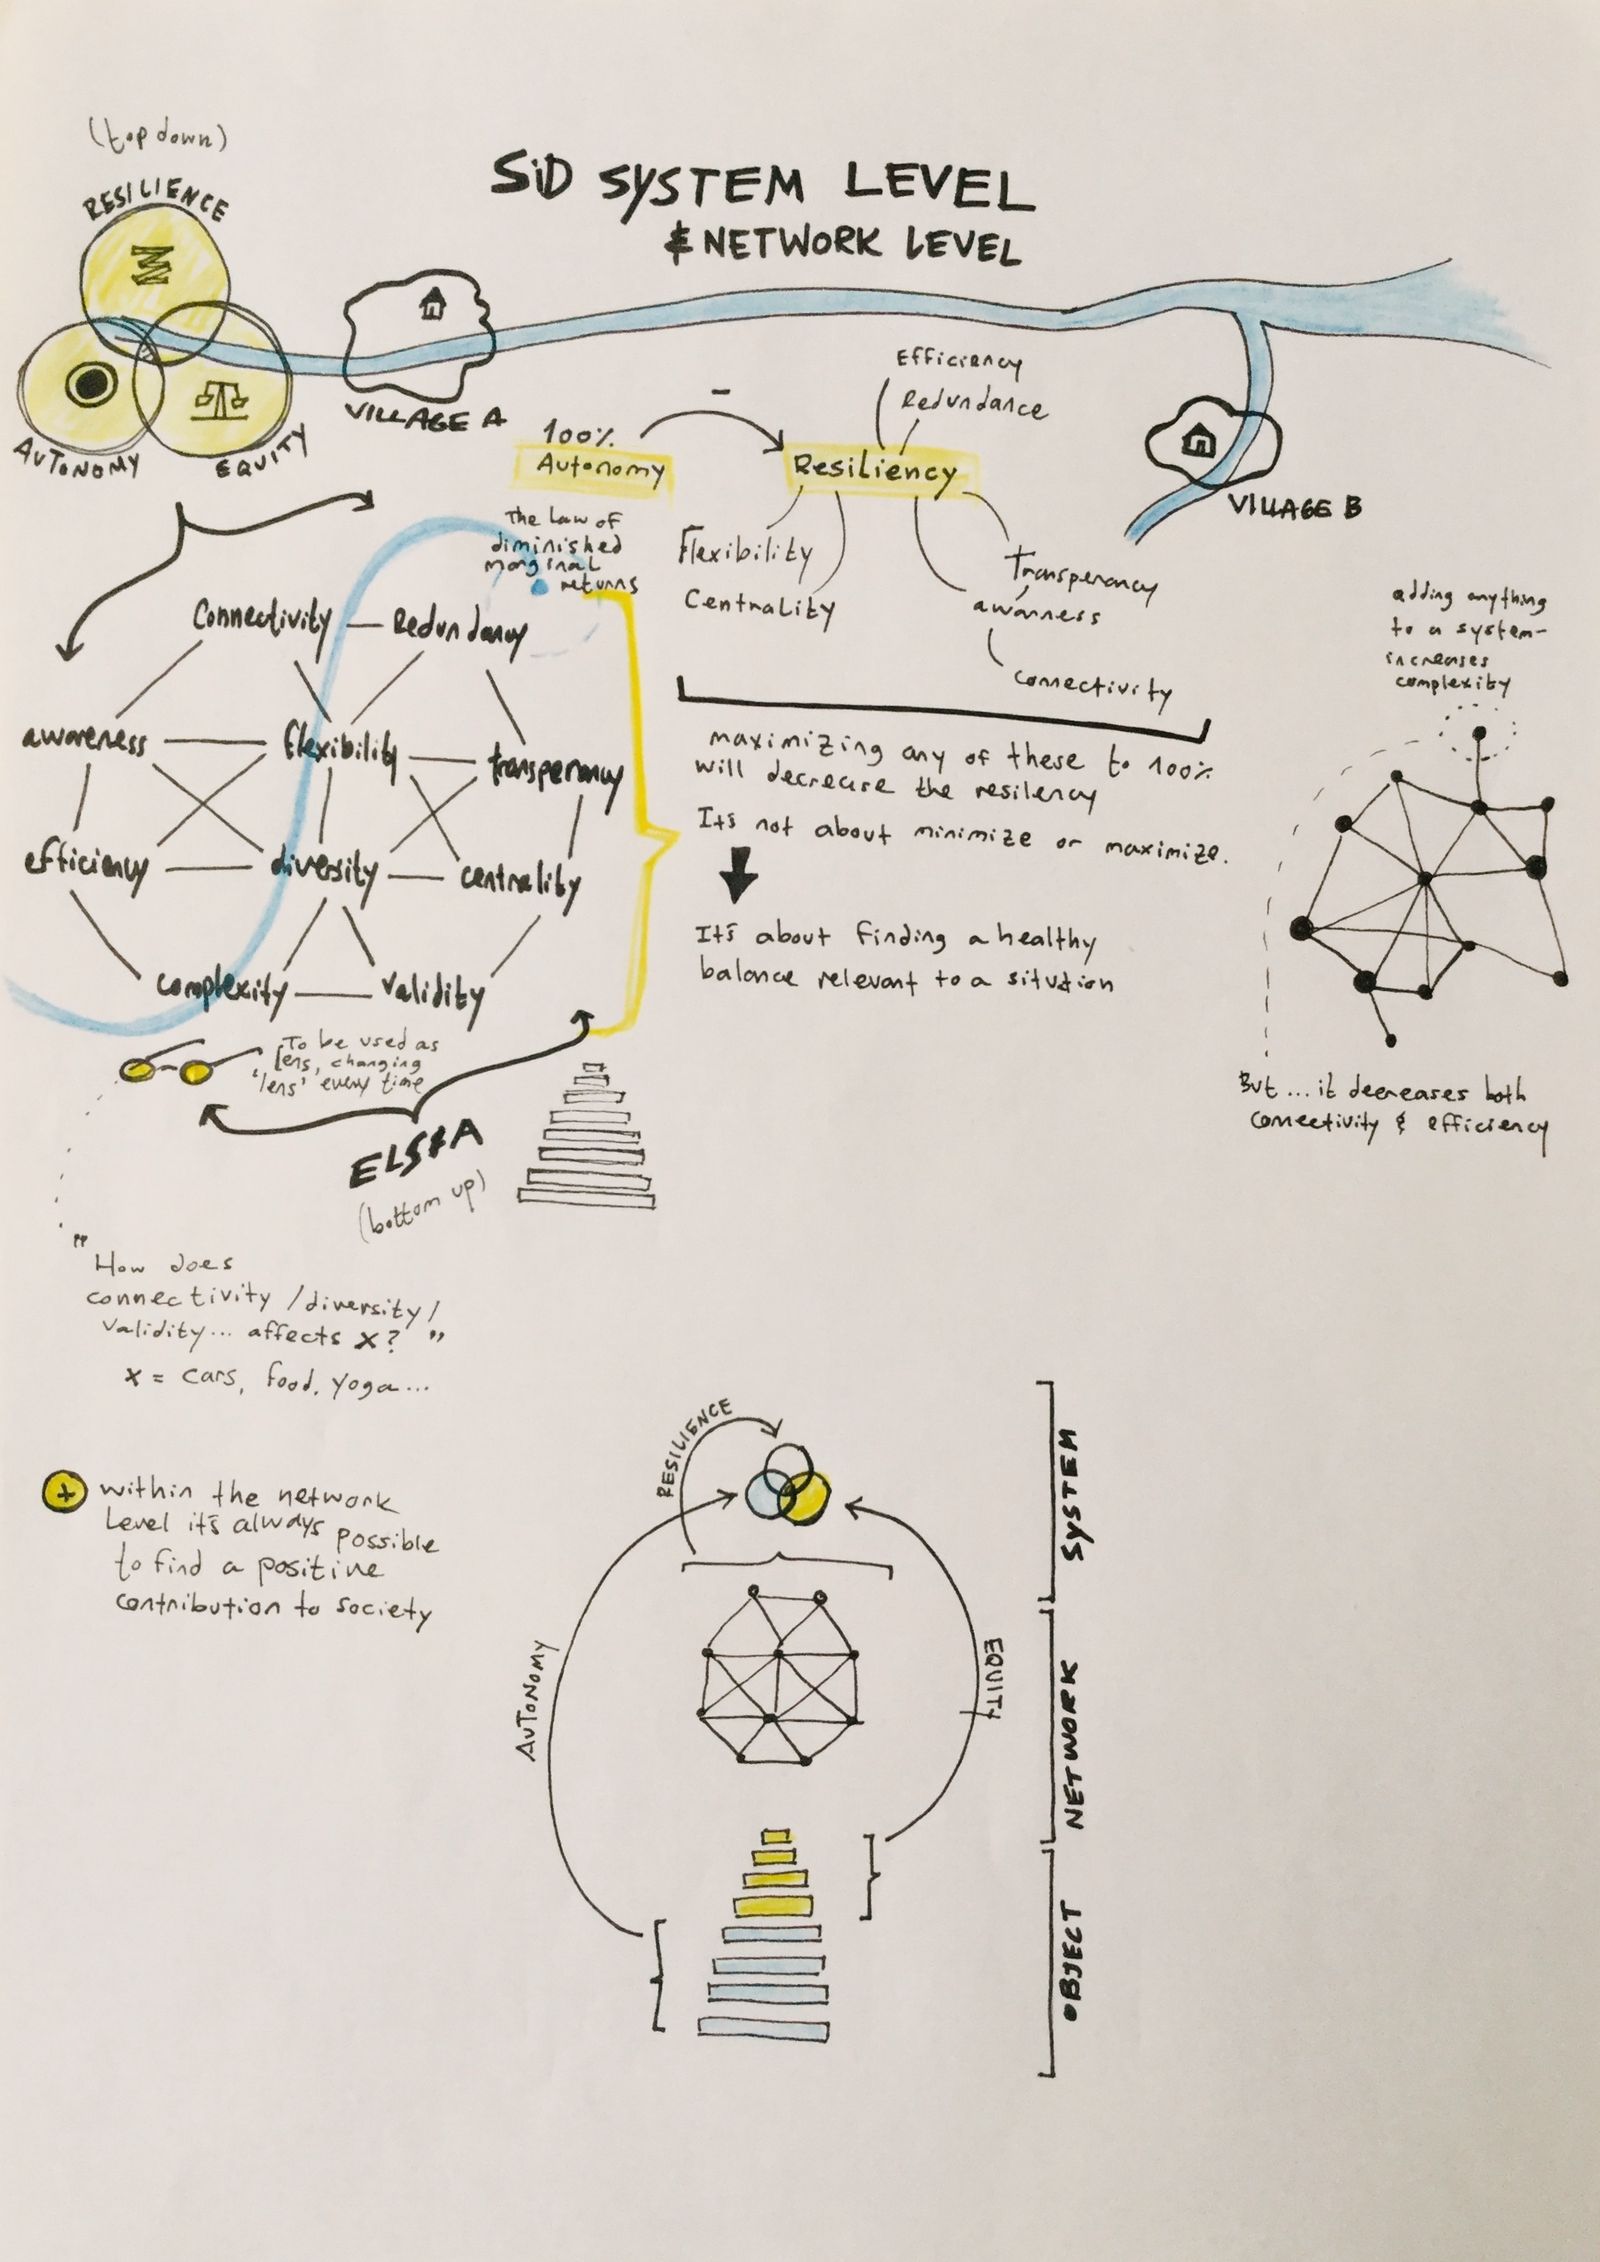 (top down)
RESILIENCE
AUTONOMY
EQUITY
SiD SYSTEM LEVEL
& NETWORK LEVEL
VILLAGE A
VILLAGE B
100%
Autonomy
-
Resiliency
Efficiency
Redundance
Flexibility
Centrality
Transperancy
awarness
connectivity
The law of
diminished
marginal
returns
Connectivity
Redundancy
awareness
flexibility
transperancy
efficiency
diversity
centrality
complexity
validity
To be used as
lens, changing
'lens' every time
ELSIA
(bottom up)
maximizing any of these to 100%
will decrease the resilency
It's not about minimize or maximize.
It's about finding a healthy
balance relevant to a sitution
adding anything
to a system-
increases
complexity
But ... it decreases both
connectivity & efficiency
"How does
connectivity / diversity /
validity... affects x? "
x = cars, food, yoga...
+ within the network
level it's always possible
to find a positive
contribution to society
RESILIENCE
AUTONOMY
EQUITY
SYSTEM
NETWORK
OBJECT